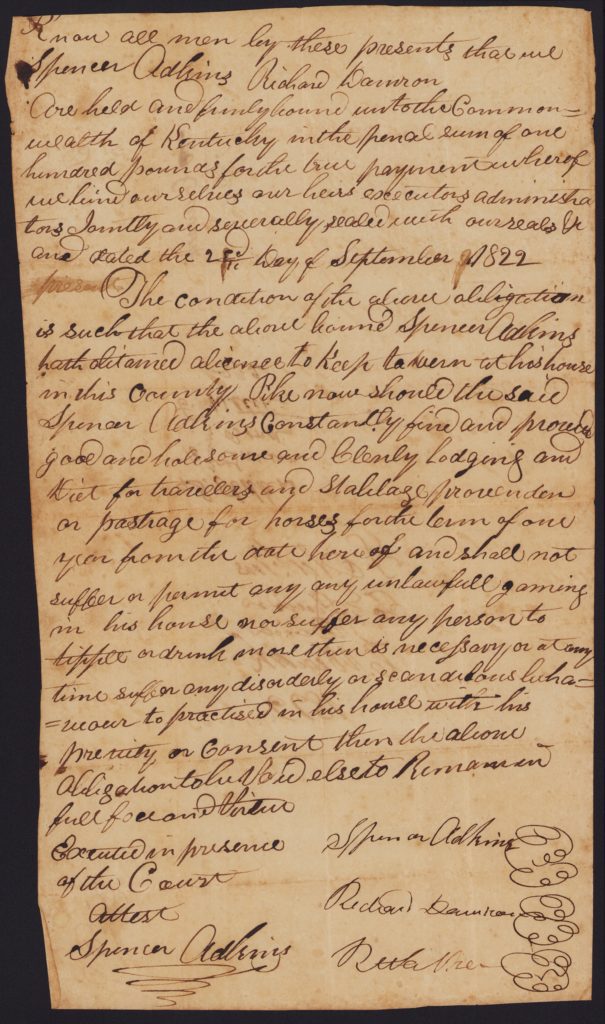 Know all men by these presents that we
Spencer Adkins Richard Damron
Are held and firmly bound unto the Common=
wealth of Kentucky in the penal sum of one
hundred pounds for the true payment wherof
we bind ourselves our heirs executors administra
tors Jointly and severally sealed with our seals &
and dated the 2nd Day of September 1822
present
The condition of the above obligation
is such that the above bound Spencer Adkins
hath obtained a licence to Keep tavern at his house
in this County Pike now should the said
Spencer Adkins Constantly find and provide
good and holesome and Clenly Lodging and
Diet for travellers and Stablage provender
or pastrage for horses for the term of one
year from the date here of and shall not
suffer or permit any any unlawfull gaming
in his house nor suffer any person to
tipple or drink more then is necessary or at any
time suffer any disorderly or scandilous beha=
=viour to practised in his house with his
previty or Consent then the above
Obligation to be Void else to Remain in
full foce and Virtue
Executed in presence
of the Court
attest
Spencer Adkins
Spencer Adkins
Richard Damron